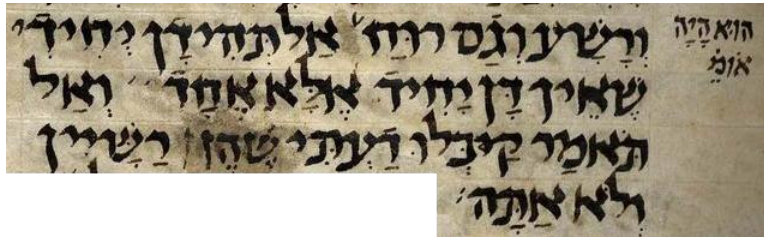 הוּא הָיָה
אוֹמֵ׳
וְרָשָׁע וְגַס רוּחַ׳ אַל תְּהִי דָן יְחִידִי
שֶׁאֵין דָּן יָחִיד אֶלָּא אֶחָד׳ וְאַל
תֹּאמַר קִיבְּלוּ דַעְתִּי שֶׁהֵן רַשָּׁיִין
וְלֹא אַתָּה׳